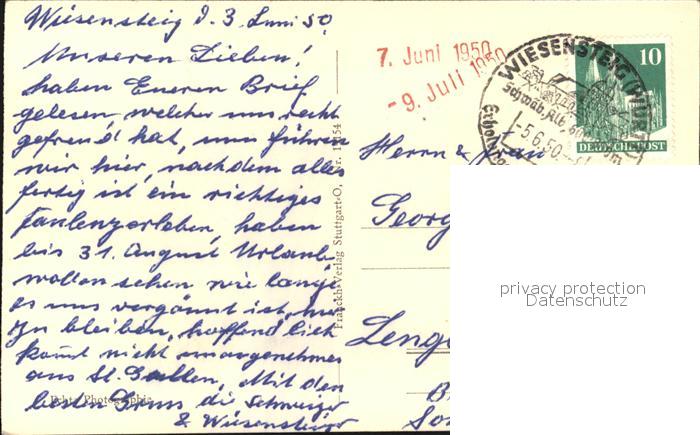 Wiesensteig d. 3. Juni 50
Unseren Lieben!
haben Eueren Brief
gelesen, welcher uns recht
gefreud hat, nun führen
wir hier, nachdem alles
fertig ist ein richtiges
Faulenzerleben, haben
bis 31. August Urlaub
wollen sehen wie lange
es uns vergönnt ist, hier
zu bleiben, hoffendlich
kommt nicht unangenehmes
aus St. Gallen, Mit den
besten Gruss die Schweizer
& Wiesensteiger
Echte Photographie
Franckh-Verlag Stuttgart-O, Nr.
7. Juni 1950
- 9. Juli 1950
WIESENSTEIG
Schwäb. Alb, 600
-5.6.50
10
DEUTSCHE POST
Herrn & Frau
Georg
Leng
privacy protection
Datenschutz